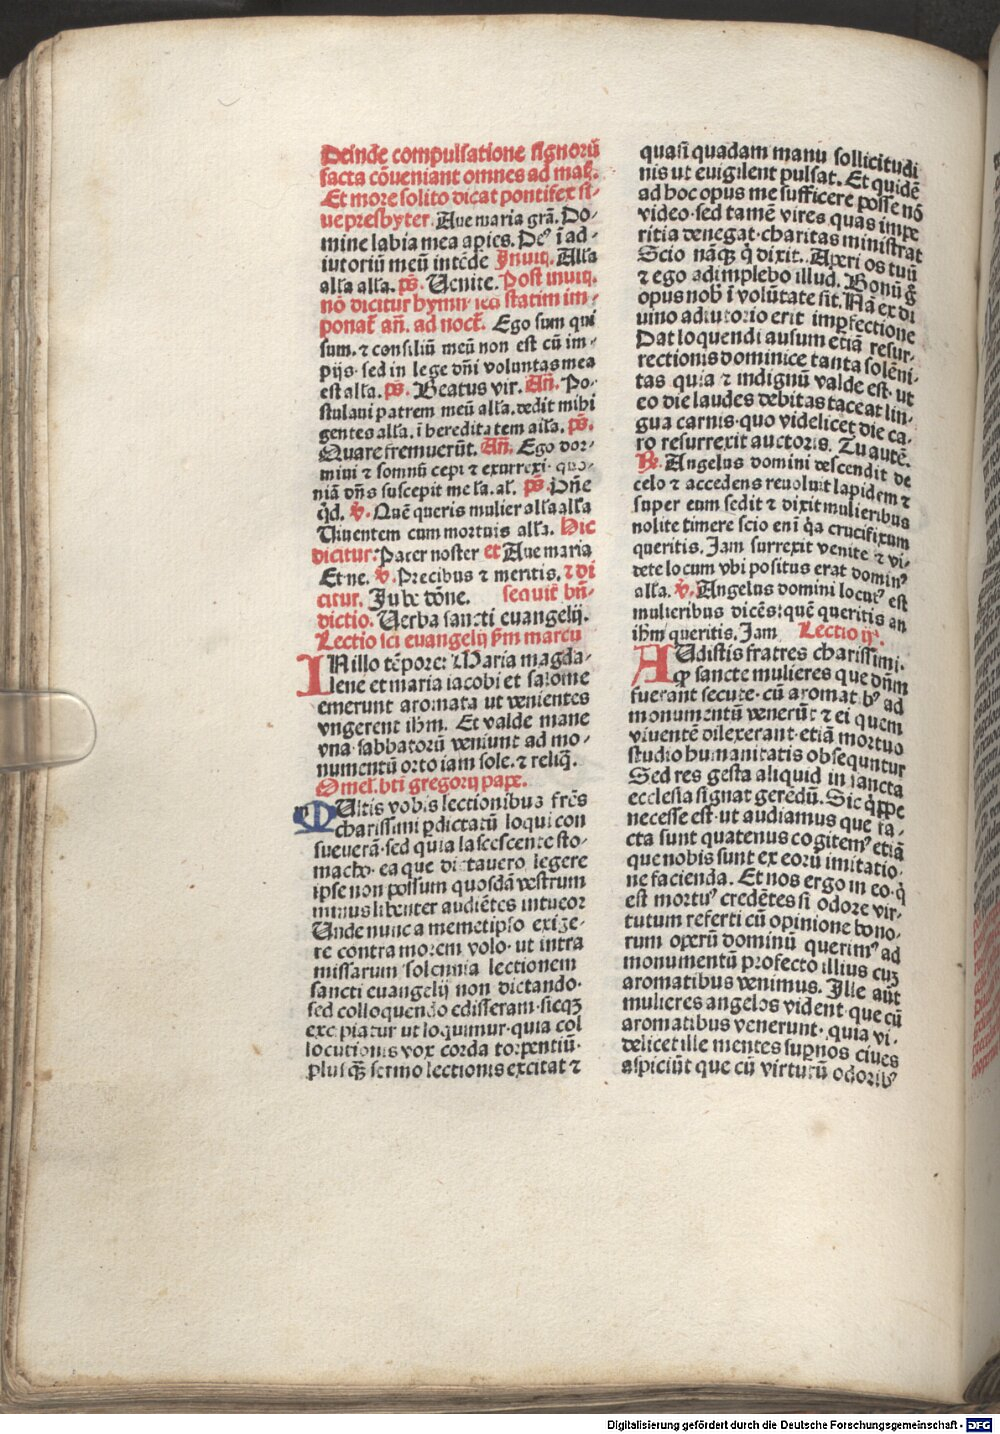 Deinde compulsatione signorū
facta cōveniant omnes ad mat̄.
Et more solito dicat pontifex si-
ve presbyter. Ave maria grā. Do-
mine labia mea apies. De⁹ ī ad-
iutoriū meū intēde Jnuit̄. Alla
alla alla. p̄s. Venite. Post inuit̄.
nō dicitur hymn⁹ sed statim im-
ponat̄ an̄. ad noct̄. Ego sum qui
sum. ⁊ consiliū meū non est cū im-
pijs. sed in lege dn̄i voluntas mea
est alla. p̄s. Beatus vir. An̄. Po-
stulaui patrem meū alla. dedit mihi
gentes alla. ī hereditatem alla. p̄s.
Quare fremuerūt. An̄. Ego dor-
miui ⁊ somnū cepi ⁊ exurrexi. quo-
niā dn̄s suscepit me la. al. p̄s. Dn̄e
q̄d. v̄. Quē queris mulier alla alla
Viuentem cum mortuis alla. Hic
dicitur: Pater noster et Aue maria
Et ne. v̄. Precibus ⁊ meritis. ⁊ di
citur. Jube dōne. sequit̄ bn̄-
dictio. Verba sancti euangelij.
Lectio sci euangelij s̄m marcū
IN illo tēpore: Maria magda-
lene et maria iacobi et salome
emerunt aromata ut venientes
vngerent ihm. Et valde mane
vna sabbatorū veniunt ad mo-
numentū orto iam sole. ⁊ reliq̄.
Omel. bti gregorij pape.
MUltis vobis lectionibus frēs
charissimi p̄dictatū loqui con
sueuerā. sed quia lassescente sto-
macho. ea que dictauero legere
ipse non possum quosdā vestrum
minus libenter audiētes intueor
Unde nunc a memetipso exige-
re contra morem volo. ut intra
missarum solennia lectionem
sancti euangelij non dictando.
sed colloquendo edisseram. sicqȝ
excipiatur ut loquimur. quia col
locutionis vox corda torpentiū.
plus q̄ȝ sermo lectionis excitat ⁊
quasi quadam manu sollicitudi
nis ut euigilent pulsat. Et quidē
ad hoc opus me sufficere posse nō
video. sed tamē vires quas impe
ritia denegat. charitas ministrat
Scio nāqȝ q̄ dixit. Aperi os tuū
⁊ ego adimplebo illud. Bonū g̊
opus nob̄ ī volūtate sit. Nā ex di
uino adiutorio erit imp̄fectione
Dat loquendi ausum etiā resur-
rectionis dominice tanta solēni-
tas quia ⁊ indignū valde est. ut
eo die laudes debitas taceat lin-
gua carnis. quo videlicet die ca-
ro resurrexit auctoris. Tu autē.
R̄. Angelus domini descendit de
celo ⁊ accedens reuoluit lapidem ⁊
super eum sedit ⁊ dixit mulieribus
nolite timere scio eni q̄a crucifixum
queritis. Jam surrexit venite ⁊ vi-
dete locum vbi positus erat domin⁹
alla. v̄. Angelus domini locut⁹ est
mulieribus dicēs: quē queritis an
ihm queritis. Jam Lectio ij.
AUdistis fratres charissimi.
q̄ sancte mulieres que dn̄m
fuerant secute. cū aromatib⁹ ad
monumentū venerūt ⁊ ei quem
viuentē dilexerant. etiā mortuo
studio humanitatis obsequntur
Sed res gesta aliquid in sancta
ecclesia signat geredū. Sic q̄ppe
necesse est. ut audiamus que fa-
cta sunt quatenus cogitem⁹ etiā
que nobis sunt ex eorū imitatio-
ne facienda. Et nos ergo in eo. q̄
est mortu⁹ credētes si odore vir-
tutum referti cū opinione bono-
rum operū dominū querim⁹ ad
monumentū profecto illius cuȝ
aromatibus venimus. Jlle aūt
mulieres angelos vident que cū
aromatibus venerunt. quia vi-
delicet ille mentes sup̄nos ciues
aspiciūt que cū virtutū odorib⁹
Digitalisierung gefördert durch die Deutsche Forschungsgemeinschaft - DFG